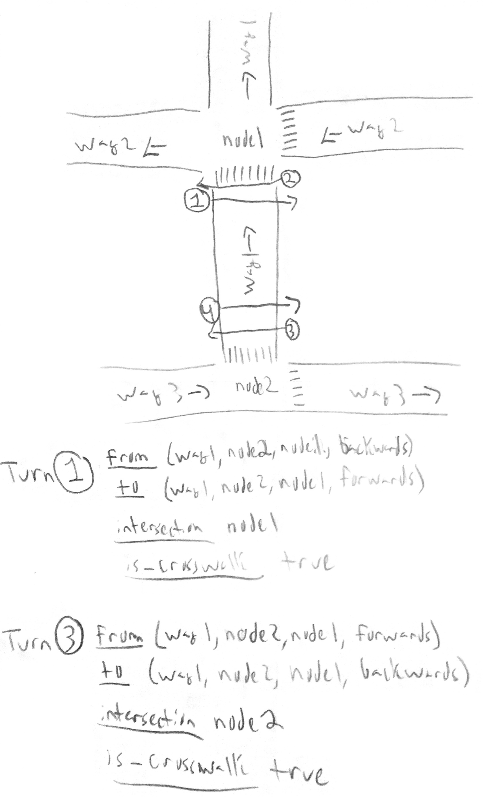 way1 →
way2 ←
node1
← way2
②
①
way1 →
④
③
way3 →
node2
way3 →
Turn ① from (way1, node2, node1, backwards)
to (way1, node2, node1, forwards)
intersection node1
is-crosswalk true
Turn ③ from (way1, node2, node1, forwards)
to (way1, node2, node1, backwards)
intersection node2
is-crosswalk true